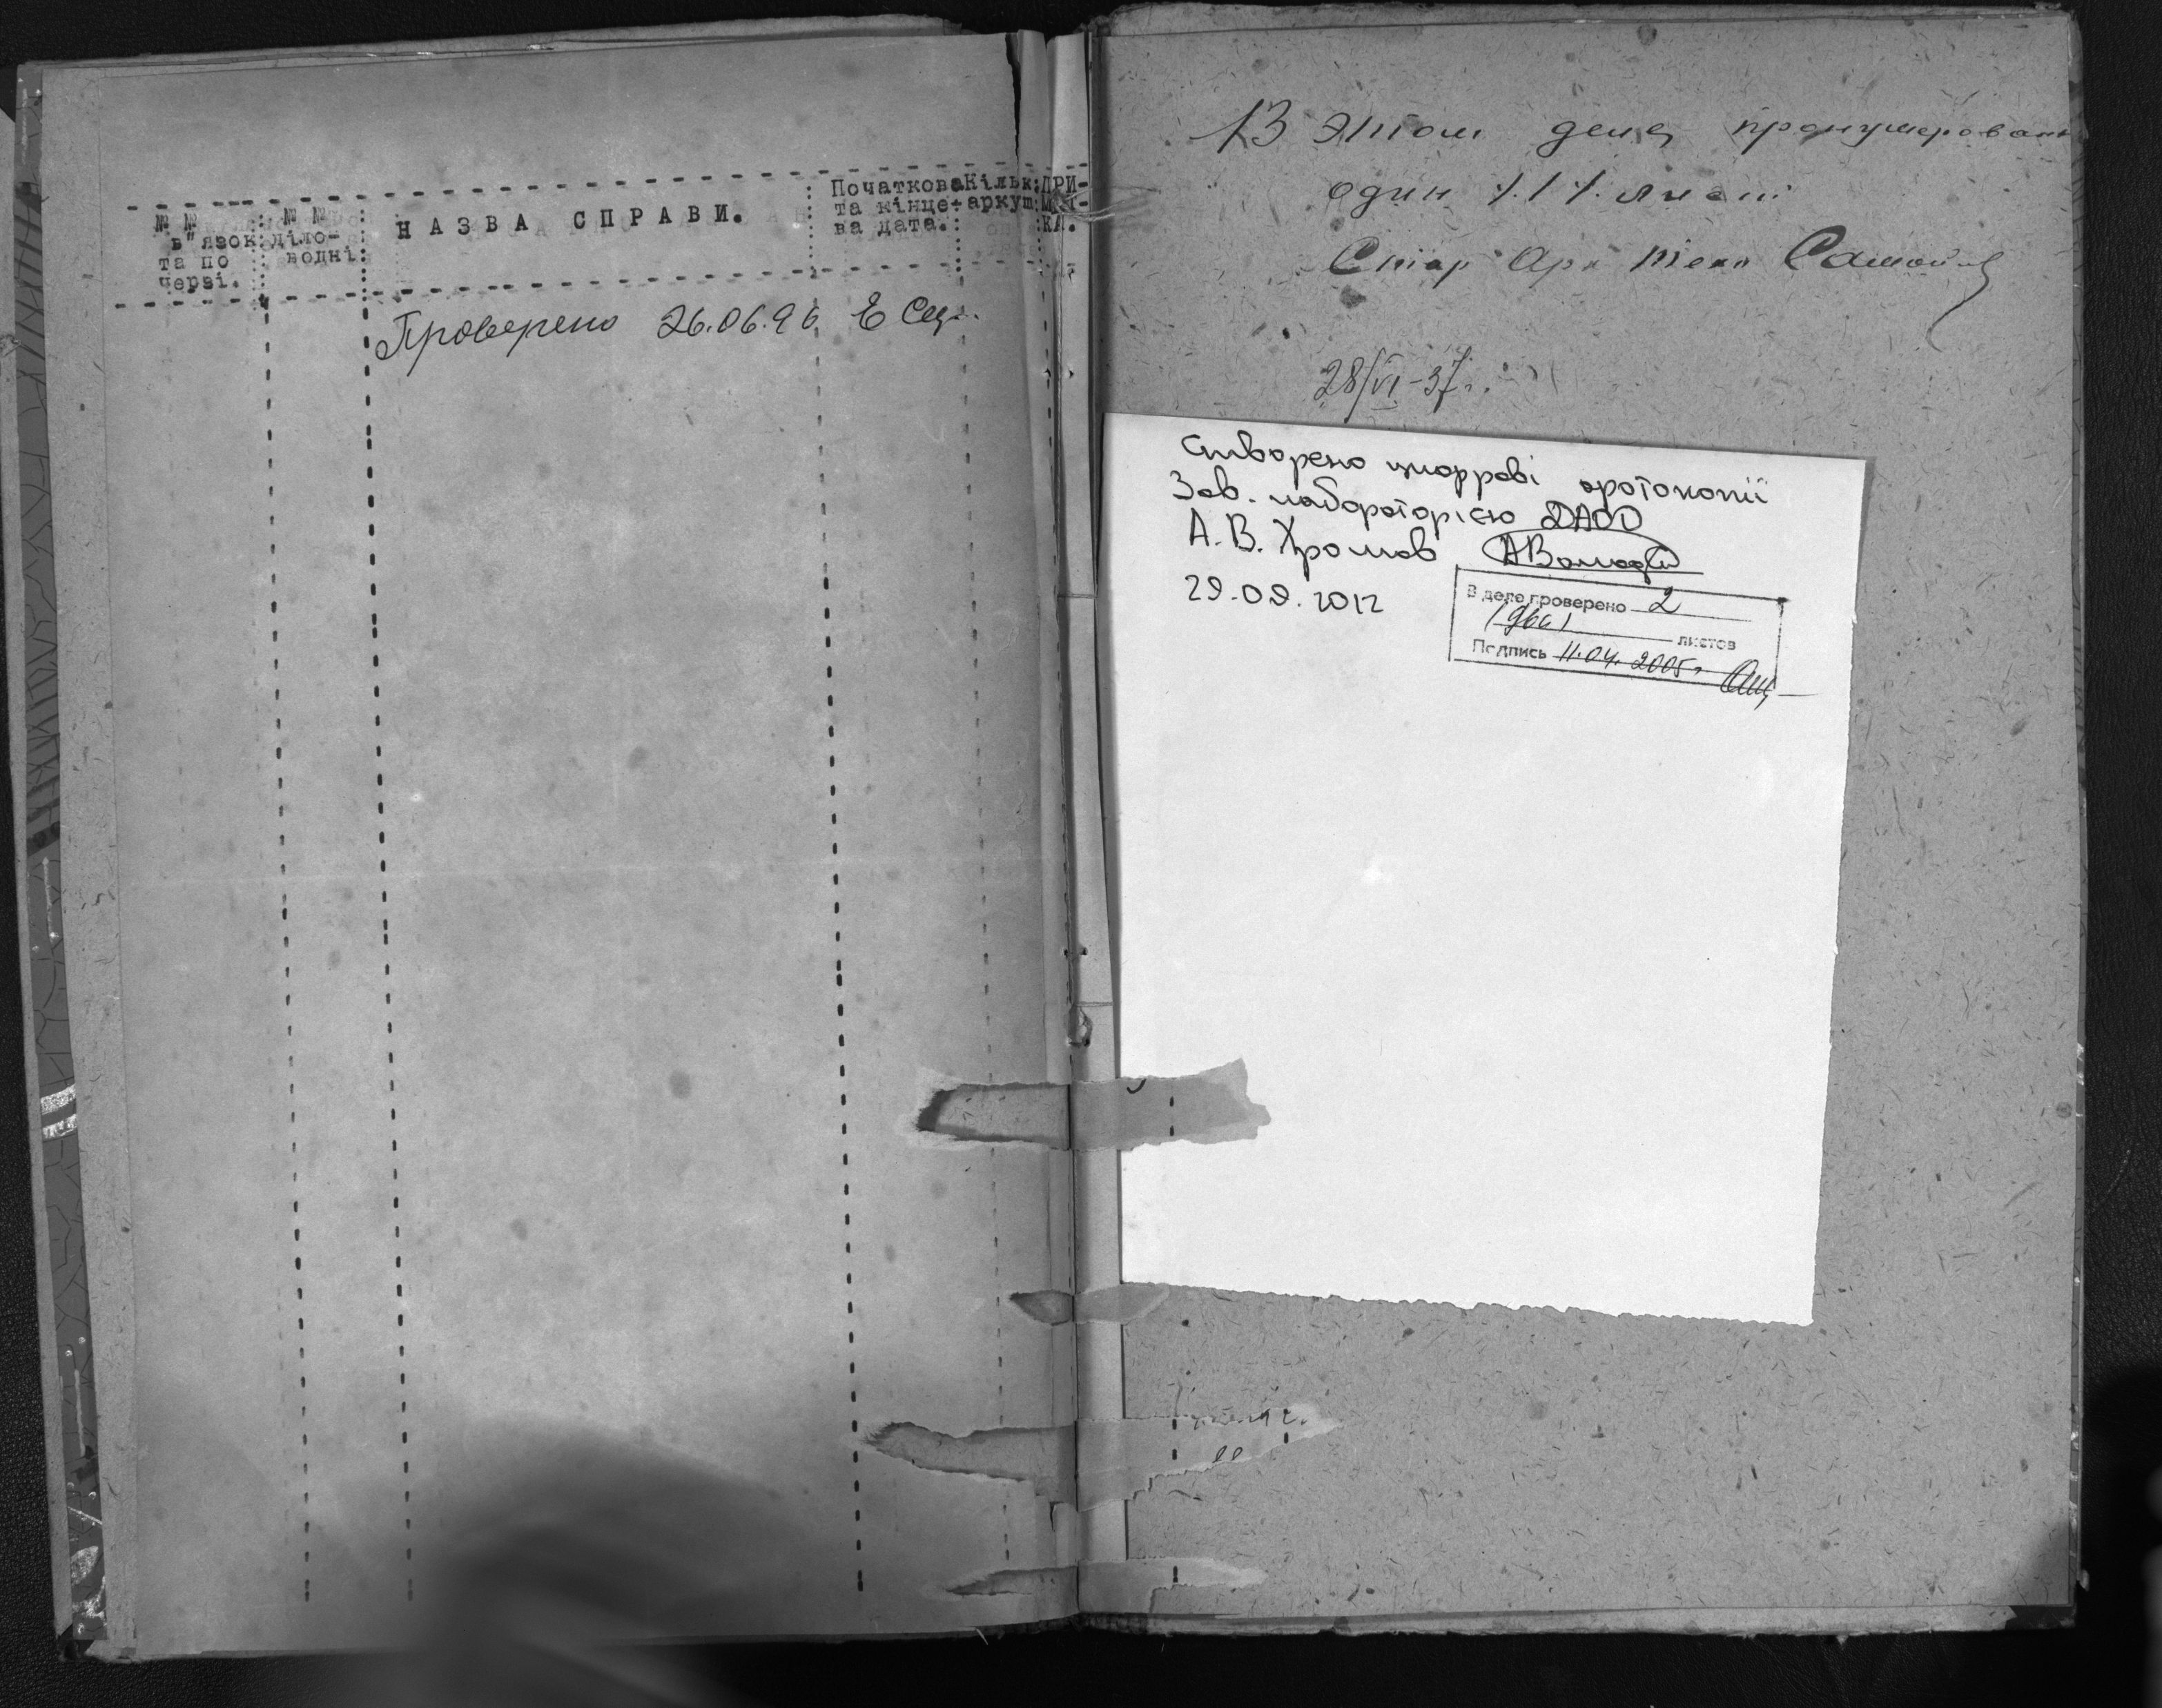 № №
в"язок
та по
черзі.
№ №
діло-
водні
НАЗВА СПРАВИ.
Початкова
та кінце-
ва дата.
Кільк.
аркуш
ПРИ-
МІТ-
КА.
Проверено 26.06.96 Е
В этом деле пронумерован
один /.1/. лист
Стар Арх техн
28/VI-37г.
Створено цифрові фотокопії
Зав. лабораторією ДАОО
А.В. Хромов
29.09.2012
В деле проверено 2
/два/ листов
Подпись 11.04.2005г.